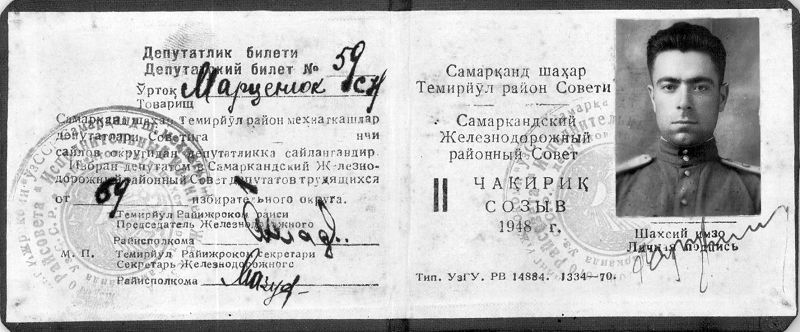 Депутатлик билети
Депутатский билет № 59
Ўртоқ
Товарищ Марценюк
Самарқанд шаҳар Темирйўл район меҳнаткашлар
депутатлари Советига — нчи
сайлов округидан депутатликка сайлангандир.
Избран депутатом в Самаркандский Железно-
дорожный районный Совет депутатов трудящихся
от 59 избирательного округа.
Темирйул Райижроком раиси
Председатель Железнодорожного
Райисполкома
М. П. Темирйул Райижроком секретари
Секретарь Железнодорожного
Райисполкома
Самарқанд шаҳар
Темирйўл район Совети
Самаркандский
Железнодорожный
районный Совет
II ЧАҚИРИҚ
СОЗЫВ
1948 г.
Шахсий имзо
Личная подпись
Тип. УзГУ. РВ 14884. 1334—70.